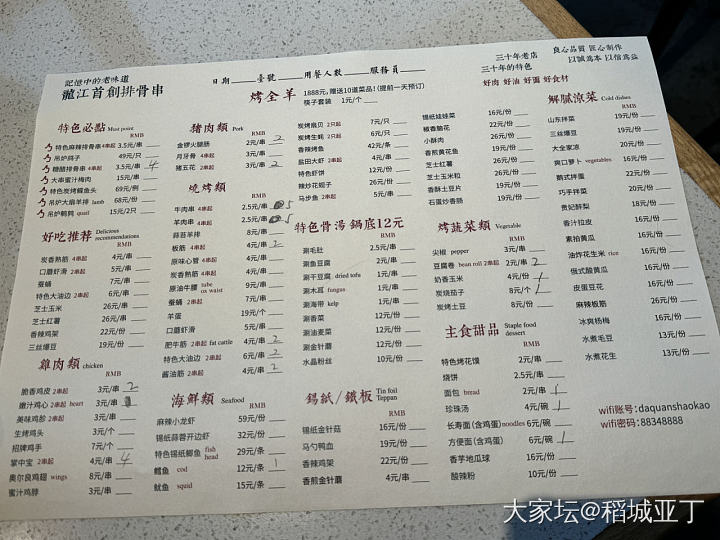 記憶中的老味道
龍江首創排骨串
日期 臺號 用餐人數 服務員
三十年老店
三十年的特色
良心品質 匠心制作
以誠爲本 以信爲益
好肉 好油 好面 好食材
烤全羊 1888元,赠送10道菜品!(提前一天预订)
筷子套装 1元/个
特色必點 Must point
RMB
特色麻辣排骨串 4串起 3.5元/串
吊炉鸽子 49元/只
糖醋排骨串 4串起 3.5元/串 4
大串蜜汁梅肉 15元/串
特色炭烤鲽鱼头 69元/例
吊炉大扇羊排 lamb 68元/份
吊炉鹌鹑 quail 15元/2只
好吃推荐 Delicious recommendations
RMB
炭香熟筋 4串起 4元/串
口蘑虾滑 2串起 5元/串
蚕蛹 7元/串
特色大油边 2串起 6元/串
芝士玉米 26元/串
芝士红薯 26元/串
香辣鸡架 22元/份
三丝爆豆 19元/份
雞肉類 chicken
RMB
脆香鸡皮 2串起 3元/串 2
嫩汁鸡心 2串起 heart 3元/串
美味鸡胗 2串起 3元/串
生烤鸡头 3元/个
招牌鸡手 7元/个
掌中宝 2串起 4元/串 4
奥尔良鸡翅 wings 8元/串
蜜汁鸡脖 3元/串
豬肉類 Pork
RMB
金锣火腿肠 2元/串 2
月牙骨 4串起 3元/串
猪五花 2串起 3元/串 2
燒烤類
RMB
牛肉串 4串起 2.5元/串 5
羊肉串 4串起 2.5元/串 5
蒜蓉羊排 8元/串
板筋 4串起 4元/串 2
原味心管 4串起 4元/串
炭香熟筋 4串起 4元/串
原油牛腰 tube ox waist 9元/串
蚕蛹 2串起 7元/串
羊蛋 19元/个
口蘑虾滑 5元/串
肥牛筋 2串起 fat cattle 4元/串 2
特色大油边 2串起 6元/串 2
酱油筋 2串起 4元/串 2
海鮮類 Seafood
RMB
麻辣小龙虾 59元/份
锡纸蒜蓉开边虾 32元/份
特色锡纸鲫鱼 fish head 29元/条
鳕鱼 cod 12元/条 1
鱿鱼 squid 15元/条
炭烤扇贝 2只起 7元/只
炭烤生蚝 2只起 6元/只
香辣烤鱼 42元/条
盐田大虾 2串起 4元/串
特色虾饼 12元/份
辣炒花蚬子 26元/份
马步鱼 2串起 5元/串
特色骨湯鍋底12元
RMB
涮毛肚 2.5元/串
涮鱼豆腐 2元/串
涮干豆腐 dried tofu 1元/串
涮木耳 fungus 1元/串
涮海带 kelp 1元/串
涮香菜 12元/份
涮油麦菜 12元/份
涮金针蘑 12元/份
水晶粉丝 10元/份
錫紙/鐵板 Tin foil Teppan
RMB
锡纸金针菇 16元/份
马勺鸭血 19元/份
香辣鸡架 22元/份
香煎金针蘑 4元/串
锡纸娃娃菜 16元/份
椒香脑花 22元/份
小酥肉 26元/份
香煎黄花鱼 19元/份
芝士红薯 26元/份
芝士玉米粒 26元/份
香酥土豆片 19元/份
石蛋炒香肠 19元/份
烤蔬菜類 Vegetable
RMB
尖椒 pepper 3元/串
豆腐卷 bean roll 2串起 2元/串 2
奶香玉米 4元/份 1
炭烧茄子 8元/个 1
炭烤土豆 8元/份
主食甜品 Staple food dessert
RMB
特色烤花馍 2元/串
烧饼 2.5元/串
面包 bread 2元/串 1
珍珠汤 4元/碗 1
长寿面(含鸡蛋) noodles 6元/碗
方便面(含鸡蛋) 6元/碗 1
香芋地瓜球 16元/份
酸辣粉 10元/份
解膩涼菜 Cold dishes
RMB
山东拌菜 19元/份
三丝爆豆 19元/份
全家凉 20元/份
爽口萝卜 vegetables 16元/份
鹅式拌蛋 22元/份
巧手拌菜 20元/份
贵妃醉梨 18元/份
香汁拉皮 16元/份
素拍黄瓜 16元/份
油炸花生米 rice 16元/份
俄式酸黄瓜 16元/份
皮蛋豆花 16元/份
麻辣板筋 26元/份
冰爽杨梅 16元/份
水煮毛豆 13元/份
水煮花生 13元/份
wifi账号:daquanshaokao
wifi密码:88348888
大家坛@稻城亚丁